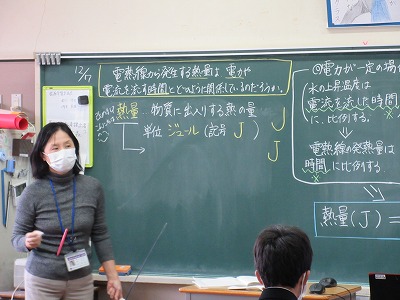 12/17
電熱線から発生する熱量は電力や
電流を流す時間とどのように関係しているのだろうか。
熱量…物質に出入りする熱の量
単位 ジュール(記号 J ) J
J
◎電力が一定の場合
水の上昇温度は
電流を流した時間
に比例する。
電熱線の発熱量は
時間に比例する。
熱量(J)=